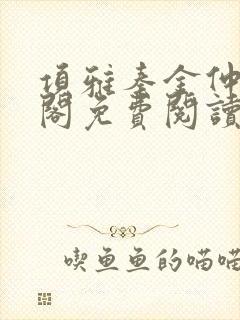 項雅秦全仲
閣免費閱讀
喫魚魚的喵喵